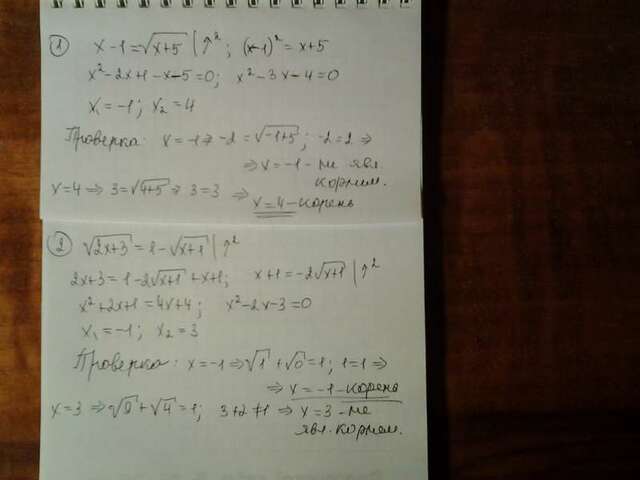 ① x-1=√(x+5) |↑²; (x-1)²=x+5
x²-2x+1-x-5=0; x²-3x-4=0
x₁=-1; x₂=4
Проверка: x=-1⇒-2=√(-1+5); -2=2⇒
⇒x=-1-не явл.
корнем.
x=4⇒3=√(4+5)⇒3=3 ⇒
x=4-корень
② √(2x+3)=1-√(x+1) |↑²
2x+3=1-2√(x+1)+x+1; x+1=-2√(x+1) |↑²
x²+2x+1=4x+4; x²-2x-3=0
x₁=-1; x₂=3
Проверка: x=-1⇒√1+√0=1; 1=1⇒
⇒x=-1-корень
x=3⇒√9+√4=1; 3+2≠1 ⇒x=3-не
явл. корнем.